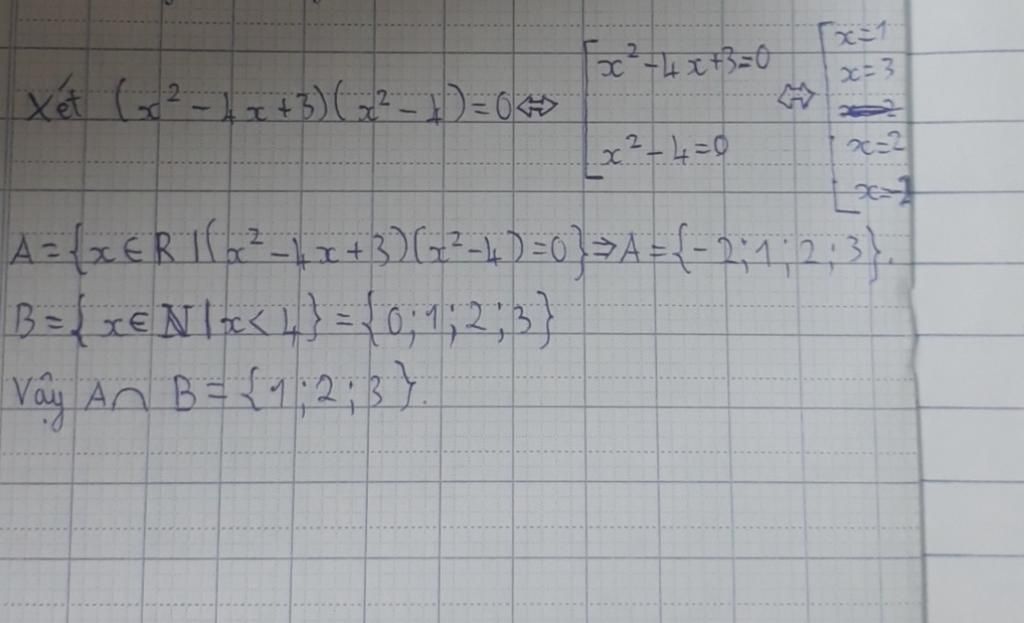 Xét (x² - 4x + 3)(x² - 4) = 0 ⇔ [ x² - 4x + 3 = 0 ⇔ [ x = 1
x = 3
x² - 4 = 0
x = 2
x = -2
A = {x ∈ R | (x² - 4x + 3)(x² - 4) = 0} ⇒ A = {-2; 1; 2; 3}.
B = {x ∈ N | x < 4} = {0; 1; 2; 3}
Vậy A ∩ B = {1; 2; 3}.